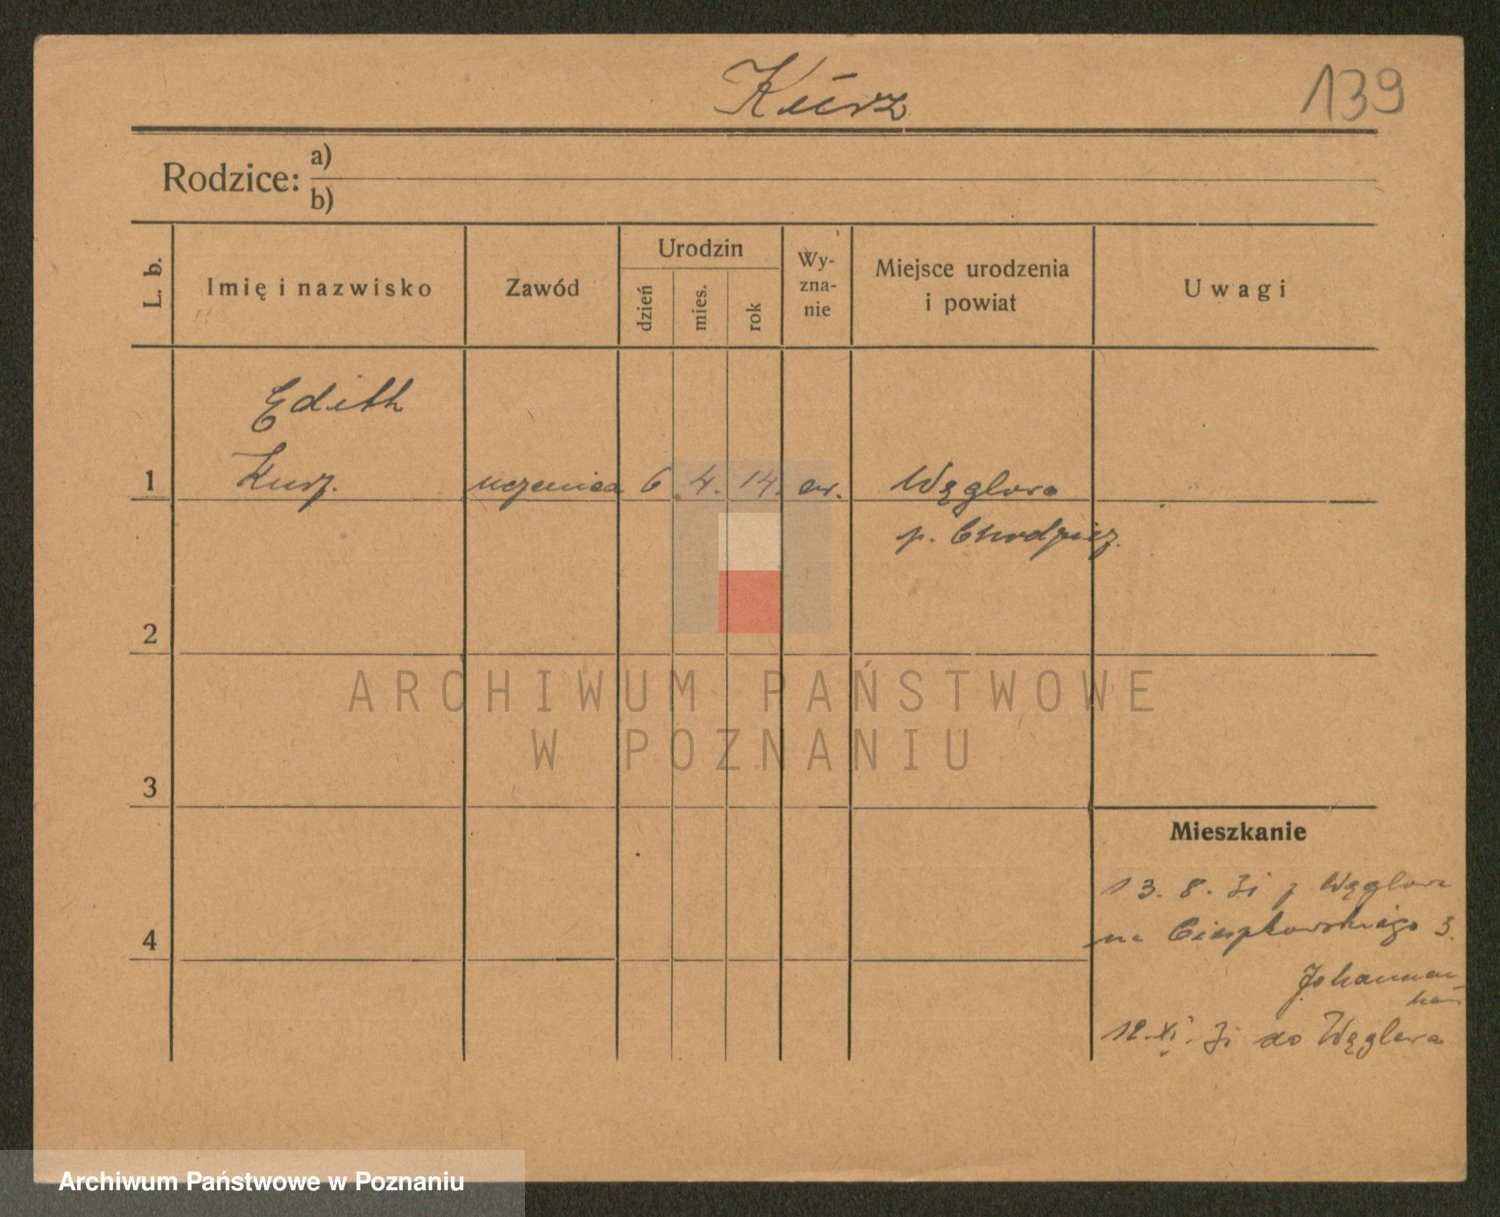 Kurz
139
Rodzice: a)
b)
L. b.
Imię i nazwisko
Zawód
Urodzin
dzień
mies.
rok
Wy-
zna-
nie
Miejsce urodzenia
i powiat
Uwagi
Edith
1 Kurz. uczenica 6 4. 14. ew.
p. Chodzież.
2
ARCHIWUM PAŃSTWOWE
W POZNANIU
3
Mieszkanie
13. 8. 31 z
4
na Cieszkowskiego 3.
12. XI. 31 do
Archiwum Państwowe w Poznaniu